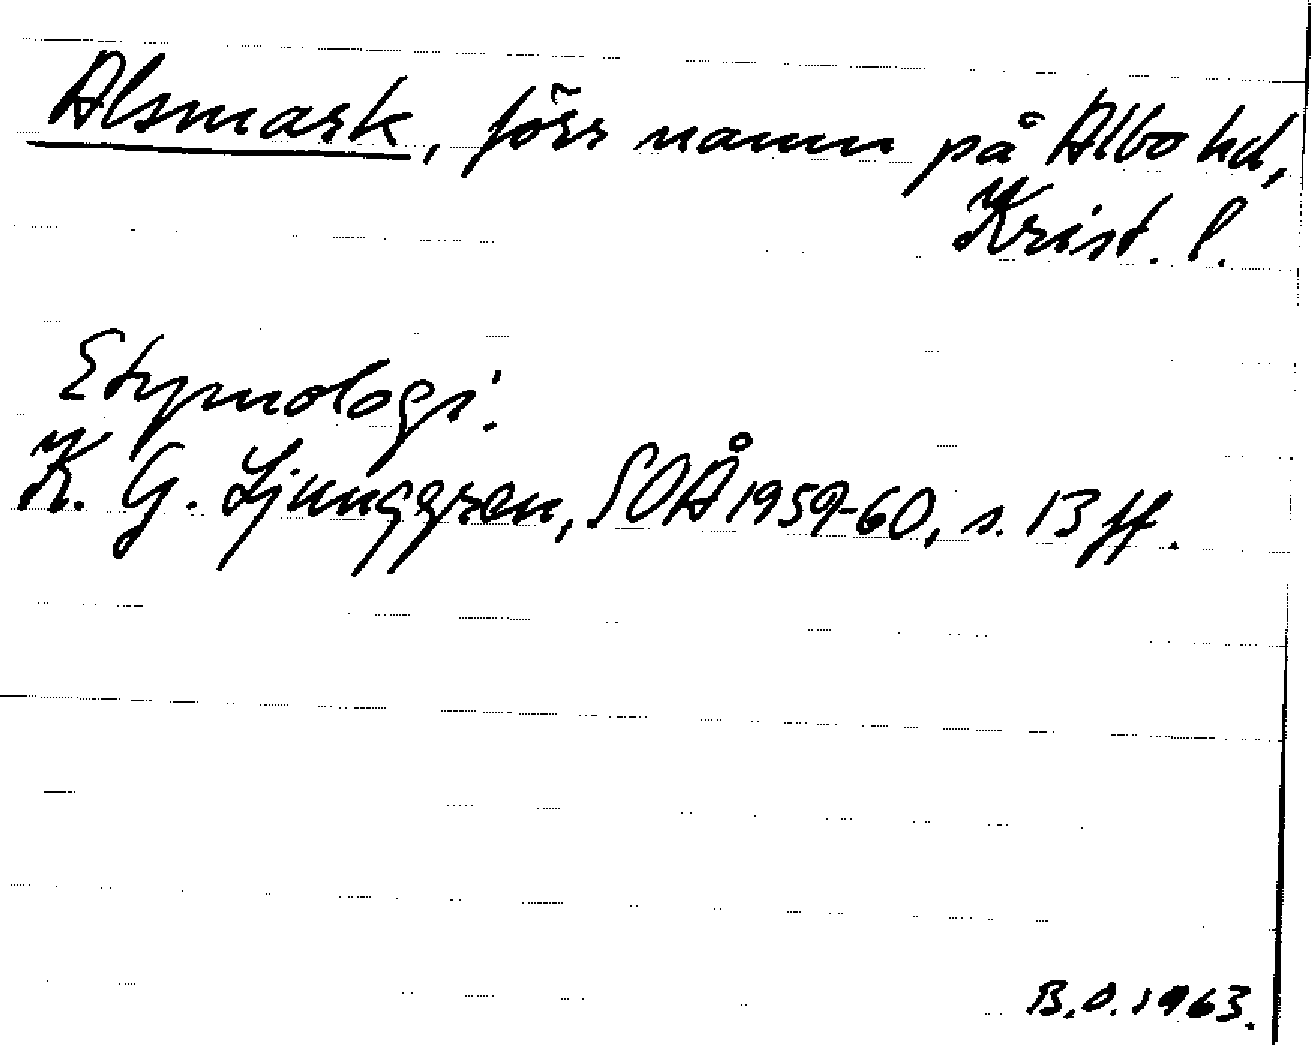 Alsmark, förr namn på Albo hd,
Krist. l.
Etymologi:
K. G. Ljunggren, SOÅ 1959-60, s. 13 ff.
B.O. 1963.